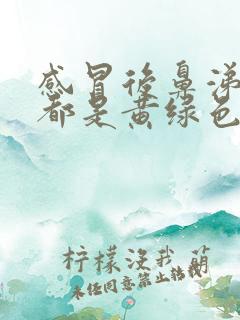 感冒后鼻涕
都是黄绿色
柠檬没我萌
未经同意禁止转载